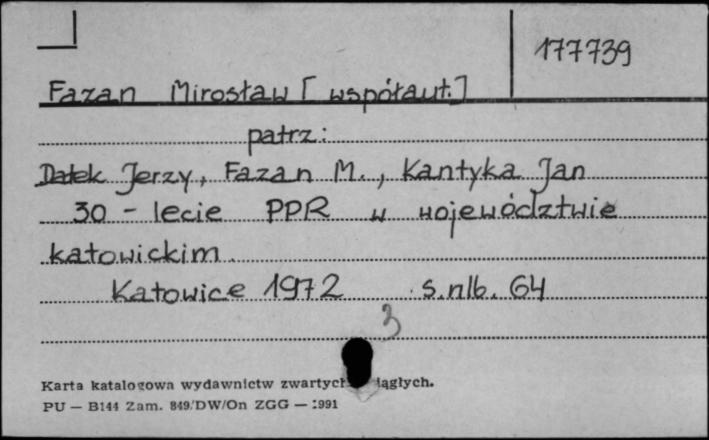 177739
Fazan Mirosław [współaut.]
patrz:
Datek Jerzy, Fazan M., Kantyka Jan
30 - lecie PPR w województwie
katowickim.
Katowice 1972 s.nlb. 64
3
Karta katalogowa wydawnictw zwartych ciągłych.
PU — B144 Zam. 849/DW/On ZGG — 1991